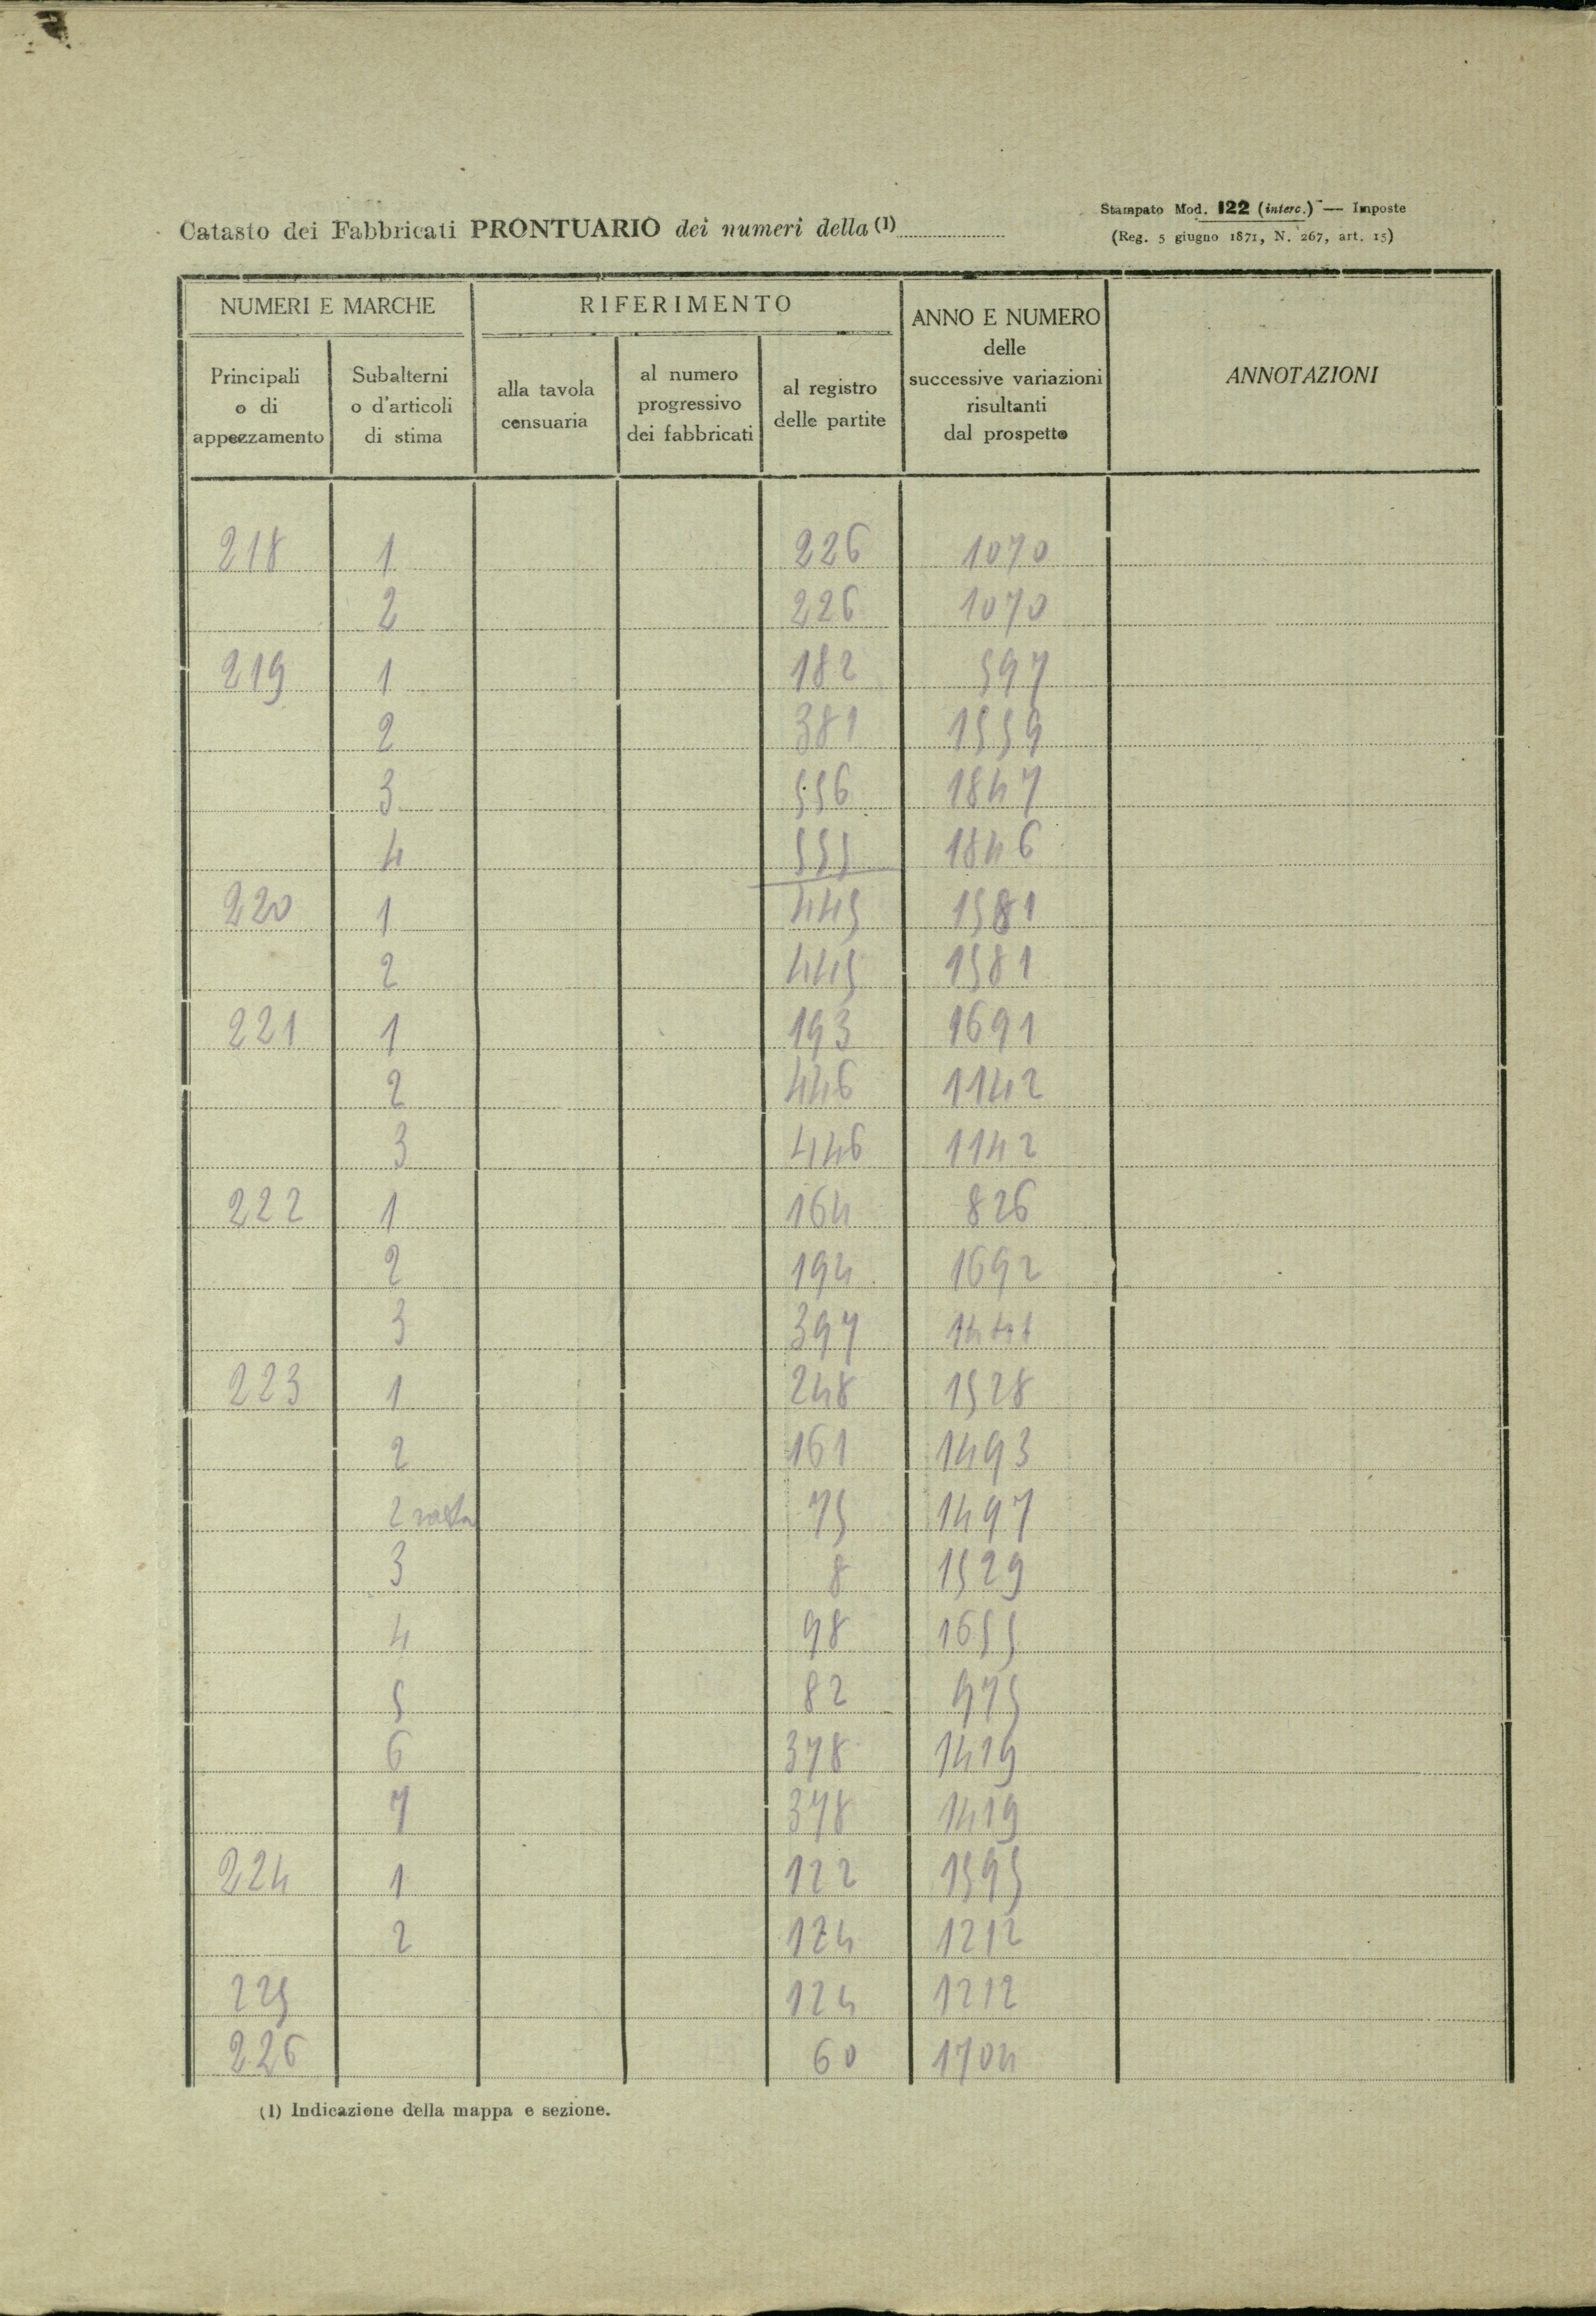 Catasto dei Fabbricati PRONTUARIO dei numeri della (1)
Stampato Mod. 122 (interc.) — Imposte
(Reg. 5 giugno 1871, N. 267, art. 15)
NUMERI E MARCHE
RIFERIMENTO
ANNO E NUMERO
delle
successive variazioni
risultanti
dal prospetto
ANNOTAZIONI
Principali
o di
appezzamento
Subalterni
o d'articoli
di stima
alla tavola
censuaria
al numero
progressivo
dei fabbricati
al registro
delle partite
218 1 226 1070
2 226 1070
219 1 182 597
2 381 1559
3 556 1847
4 555 1846
220 1 445 1581
2 445 1581
221 1 193 1691
2 446 1142
3 446 1142
222 1 164 826
2 194 1692
3 397
223 1 248 1528
2 161 1493
2 75 1497
3 8 1529
4 98 1655
5 82 975
6 378 1419
7 378 1419
224 1 122 1595
2 124 1212
225 124 1212
226 60 1704
(1) Indicazione della mappa e sezione.